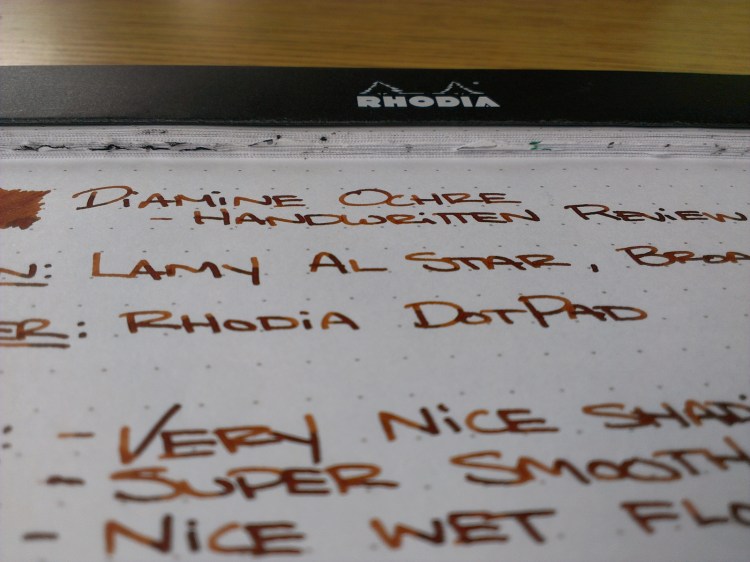 RHODIA
DiAMINE OCHRE
- HANDWRiTTEN REViEW
N: LAMY AL STAR, BROA
ER: RHODiA DOTPAD
: - VERY NiCE SHADi
- SUPER SMOOTH
- NiCE WET FLO